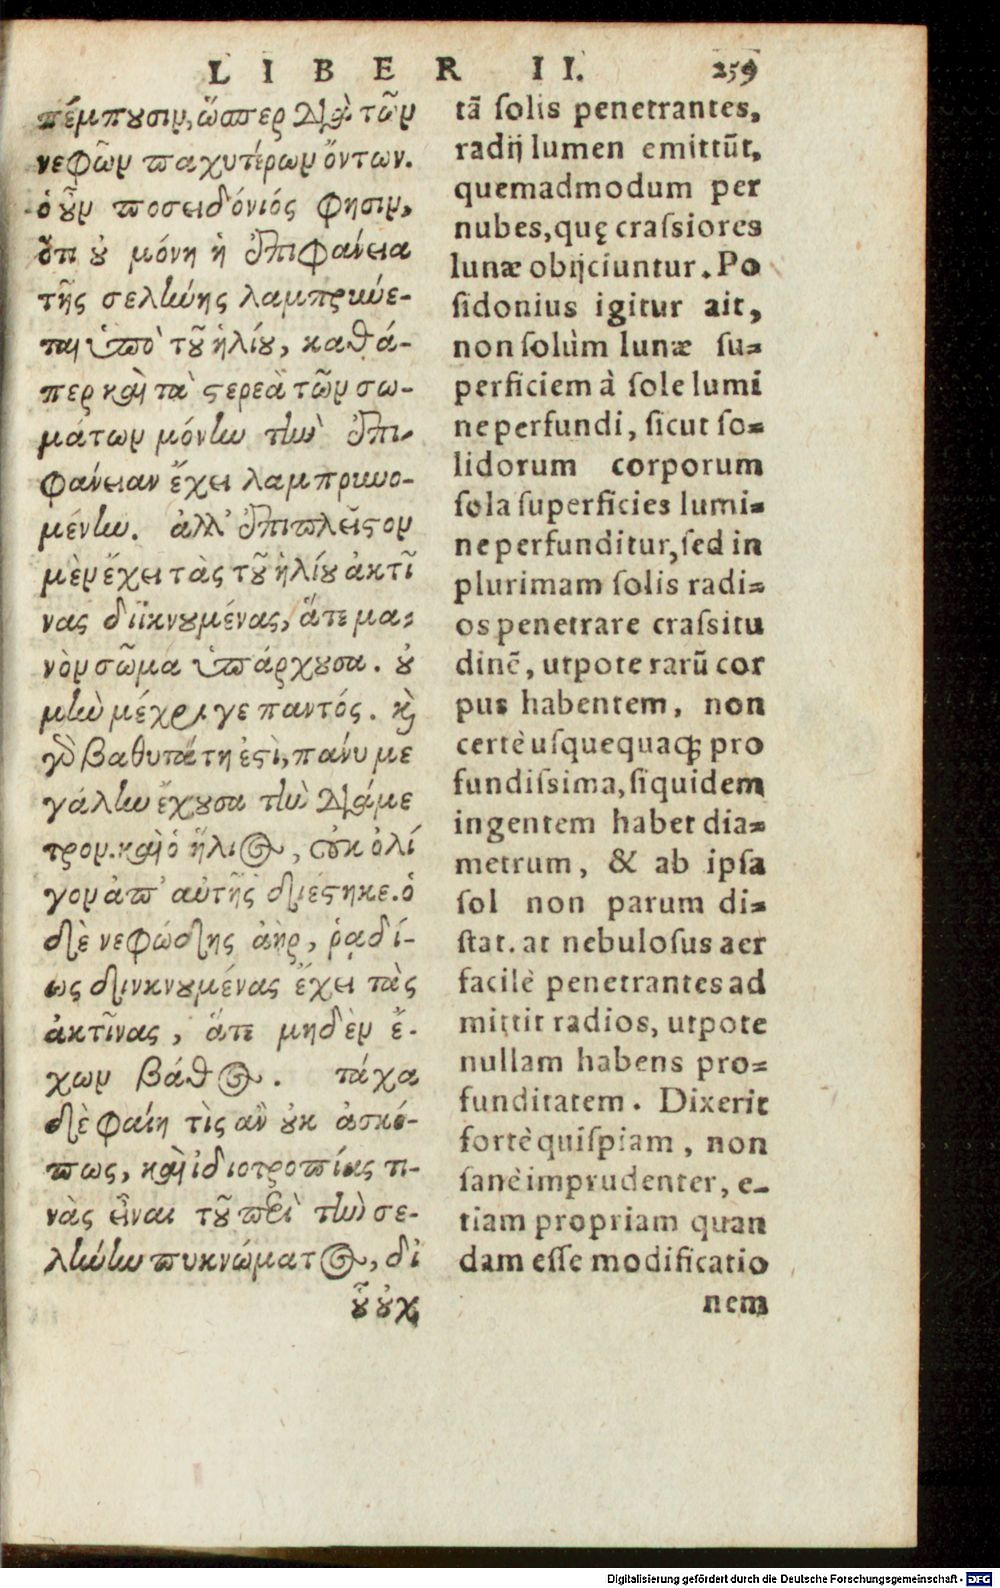 LIBER II. 259
πέμπουσιν, ὥσπερ διὰ τῶν
νεφῶν παχυτέρων ὄντων.
ὁ οὖν ποσειδόνιός φησιν,
ὅτι οὐ μόνη ἡ ἐπιφάνεια
τῆς σελήνης λαμπρύνε-
ται ὑπὸ τοῦ ἡλίου, καθά-
περ καὶ τὰ στερεὰ τῶν σω-
μάτων μόνην τὴν ἐπι-
φάνειαν ἔχει λαμπρυνο-
μένην. ἀλλ' ἐπιπλεῖστον
μὲν ἔχει τὰς τοῦ ἡλίου ἀκτῖ
νας διϊκνουμένας, ἅτε μα-
νὸν σῶμα ὑπάρχουσα. οὐ
μὴν μέχρι γε παντός. καὶ
γὸ βαθυτάτη ἐστὶ, πάνυ με
γάλην ἔχουσα τὴν διάμε
τρον. καὶ ὁ ἥλιος, οὐκ ὀλί
γον ἀπ' αὐτῆς διέστηκε. ὁ
δὲ νεφώδης ἀὴρ, ῥᾳδί-
ως διινκνουμένας ἔχει τὰς
ἀκτῖνας, ἅτε μηδὲν ἔ-
χων βάθος. τάχα
δὲ φαίη τὶς ἂν οὐκ ἀσκό-
πως, καὶ ἰδιοτροπίας τι-
νὰς εἶναι τοῦ περὶ τὴν σε-
λήνην πυκνώματος, δι
οὗ οὐχ
tā solis penetrantes,
radij lumen emittūt,
quemadmodum per
nubes, quę crassiores
lunæ obijciuntur. Po
sidonius igitur ait,
non solùm lunæ su-
perficiem à sole lumi
ne perfundi, sicut so-
lidorum corporum
sola superficies lumi-
ne perfunditur, sed in
plurimam solis radi-
os penetrare crassitu
dinē, utpote rarū cor
pus habentem, non
certè usquequaq; pro
fundissima, siquidem
ingentem habet dia-
metrum, & ab ipsa
sol non parum di-
stat. at nebulosus aer
facilè penetrantes ad
mittit radios, utpote
nullam habens pro-
funditatem. Dixerit
fortè quispiam, non
sanè imprudenter, e-
tiam propriam quan
dam esse modificatio
nem
Digitalisierung gefördert durch die Deutsche Forschungsgemeinschaft - DFG